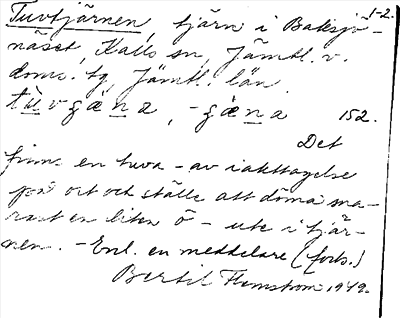 1-2.
Tuvtjärnen, tjärn i Baksjö-
näset, Kalls sn, Jämtl. v.
doms. tg, Jämtl. län.
152.
Det
finns en tuva – av iakttagelse
på ort och ställe att döma sna-
rast en liten ö – ute i tjär-
nen. – Enl. en meddelare (forts.)
Bertil Flemström 1949.